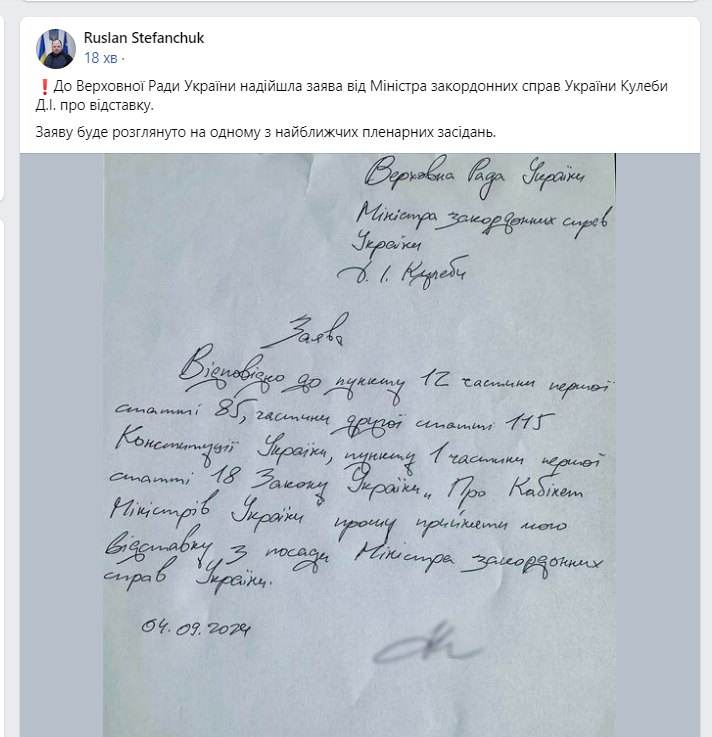 Ruslan Stefanchuk
18 хв ·
❗До Верховної Ради України надійшла заява від Міністра закордонних справ України Кулеби
Д.І. про відставку.
Заяву буде розглянуто на одному з найближчих пленарних засідань.
Верховна Рада України
Міністра закордонних справ
України
Д. І. Кулеби
Заява
Відповідно до пункту 12 частини першої
статті 85, частини другої статті 115
Конституції України, пункту 1 частини першої
статті 18 Закону України „Про Кабінет
Міністрів України прошу прийняти мою
відставку з посади Міністра закордонних
справ України.
04.09.2024